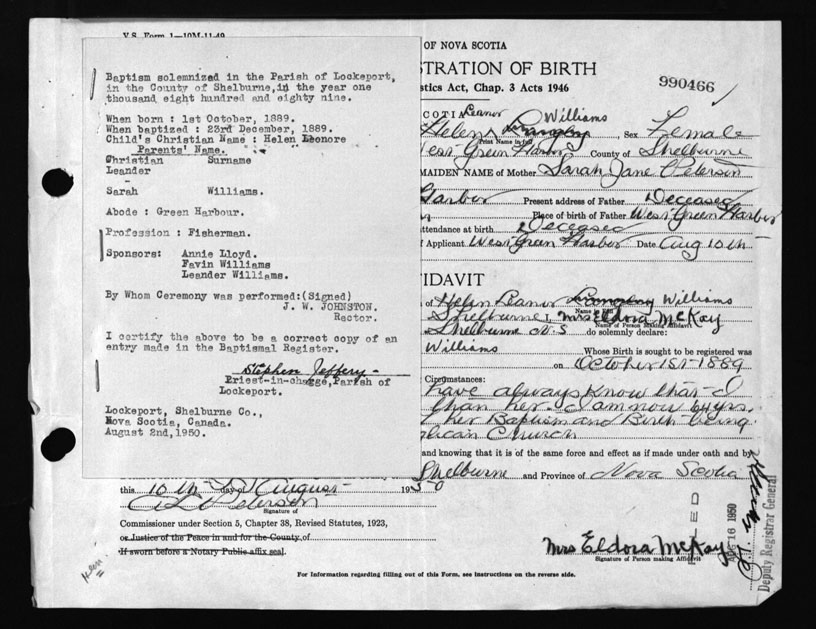 V.S. Form 1—10M-11-49
Baptism solemnized in the Parish of Lockeport,
in the County of Shelburne,in the year one
thousand eight hundred and eighty nine.
When born : 1st October, 1889.
When baptized : 23rd December, 1889.
Child's Christian Name : Helen Leonore
Parents' Name.
Christian Surname
Leander
-
Sarah Williams.
Abode : Green Harbour.
Profession : Fisherman.
Sponsors: Annie Lloyd.
Favin Williams
Leander Williams.
By Whom Ceremony was performed:(Signed)
J. W. JOHNSTON.
Rector.
I certify the above to be a correct copy of an
entry made in the Baptismal Register.
Stephen Jeffery-
Priest-in-charge,Parish of
Lockeport.
Lockeport, Shelburne Co.,
Nova Scotia, Canada.
August 2nd,1950.
OF NOVA SCOTIA
STRATION OF BIRTH
990466
stics Act, Chap. 3 Acts 1946
COTIA Leanor Williams
Helen Sex Female
Print Name in full
West Green Harbor County of Shelburne
MAIDEN NAME of Mother Sarah Jane Peterson
Harbor Present address of Father Deceased
Place of birth of Father West Green Harbor
attendance at birth Deceased
f Applicant West Green Harbor Date Aug 10th
FIDAVIT
of Helen Leanor Williams
Name in Full
Shelburne, Mrs Eldora McKay
Name of Person making Affidavit
Shelburne N.S do solemnly declare:
Williams Whose Birth is sought to be registered was
on October 1st 1889
Circumstances:
have always Know that I
than her. I am now 64 yrs.
her Baptism and Birth being
glican Church
and knowing that it is of the same force and effect as if made under oath and by
Shelburne and Province of Nova Scotia
this 10th day of August 1950
Peterson
Signature of
Commissioner under Section 5, Chapter 38, Revised Statutes, 1923,
or Justice of the Peace in and for the County of
If sworn before a Notary Public affix seal.
Mrs Eldora McKay
Signature of Person making Affidavit
For Information regarding filling out of this Form, see Instructions on the reverse side.
16 1950
Deputy Registrar General